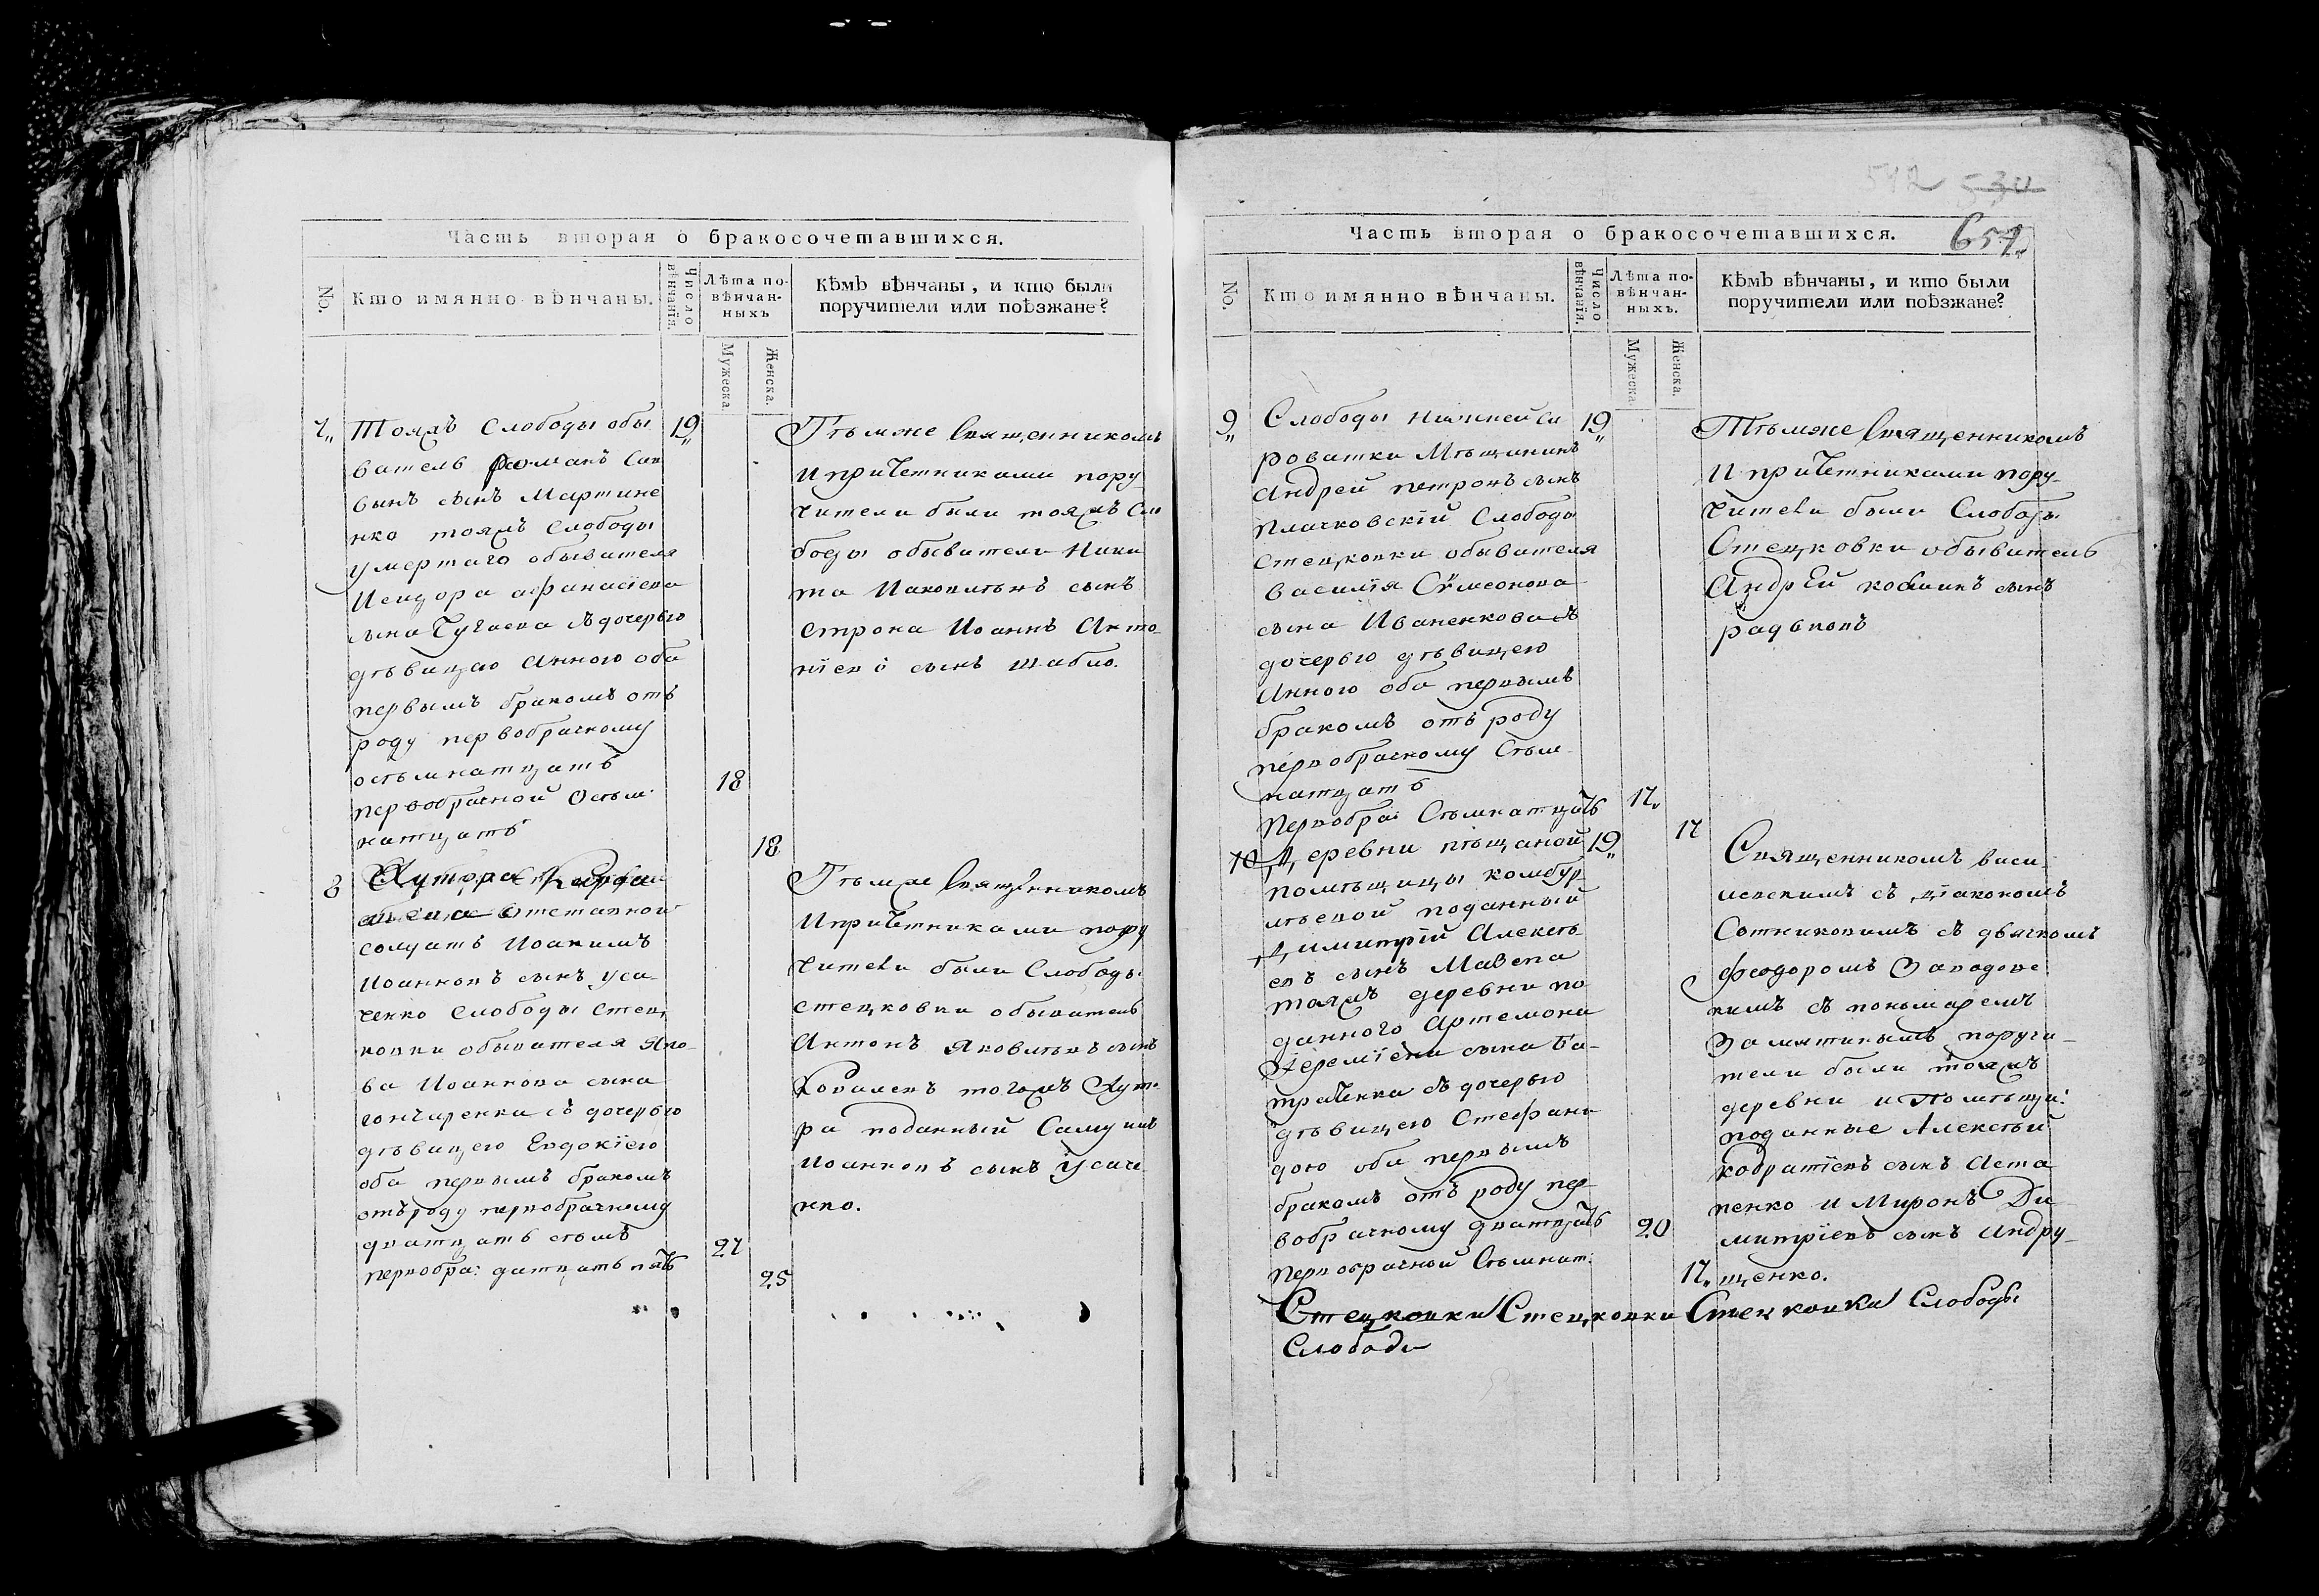 Часть вторая о бракосочетавшихся.
No.
Кто имянно вѣнчаны.
Число вѣнчанія.
Лѣта повѣнчанныхъ
Мужеска.
Женска.
Кѣмъ вѣнчаны, и кто были
поручители или поѣзжане?
7. Тояжъ Слободы обы
ватель Романъ Сав
винъ сынъ Мартине
нко тояжъ Слободы
умершаго обывателя
Исидора Афанасіева
сына Чугаева съ дочерью
дѣвицею Анною оба
первымъ бракомъ отъ
роду первобрачному
осѣмнатцать
первобрачной Осѣм
натцать
19
18
18
Тѣмже Священникомъ
и причетниками пору
чители были тояжъ Сло
боды обыватели Ники
та Иаковлѣвъ сынъ
Строка Иоаннъ Анто
ніевъ сынъ Шабло.
8 Хутора
отставной
солдатъ Иоакимъ
Иоанновъ сынъ Уса
ченко Слободы Стец
ковки обывателя Яко
ва Иоаннова сына
гончаренка съ дочерью
дѣвицею Евдокіею
оба первымъ бракомъ
отъ роду первобрачному
дватцать сѣмъ
первобра: датцать пять
27
25
Тѣмже Священникомъ
и причетниками пору
чители были Слободы
Стецковки обыватель
Антонъ Яковлѣвъ сынъ
Ковалевъ тогожъ Хуто
ра поданный Самуилъ
Иоанновъ сынъ Усаче
нко.
657.
Часть вторая о бракосочетавшихся.
No.
Кто имянно вѣнчаны.
Число вѣнчанія.
Лѣта повѣнчанныхъ.
Мужеска
Женска.
Кѣмъ вѣнчаны, и кто были
поручители или поѣзжане?
9 Слободы Нижней Си
роватки Мѣщанинъ
Андрей Петровъ сынъ
Плачковскій Слободы
Стецковки обывателя
Василія Сѵмеонова
сына Иваненкова съ
дочерью дѣвицею
Анною оба первымъ
бракомъ отъ роду
первобрачному Сѣм
натцать
Первобра: Сѣмнатцать
19
17.
17
Тѣмже Священникомъ
и причетниками пору
чители были Слободы
Стецковки обыватель
Андрей сынъ
Радѣковъ
10 Деревни пѣщаной
помѣщицы Комбур
лѣевой поданный
Димитрій Алексѣ
евъ сынъ
тояжъ деревни по
данного Артемона
Іереміева сына Ба
траченка съ дочерью
дѣвицею Стефани
дою оба первымъ
бракомъ отъ роду пер
вобрачному дватцать
первобрачной Сѣмнат:
19
20
17.
Священникомъ Васи
левскимъ съ діакономъ
Сотниковимъ съ дьячкомъ
Феодоромъ
кимъ съ пономаремъ
Замятинымъ поручи
тели были тояжъ
деревни и помѣщи:
поданные Алексѣй
Кодратіевъ сынъ Аста
пенко и Миронъ Ди
митріевъ сынъ Андру
щенко.
Стецковки Стецковки Стецковки Слободы
Слободы